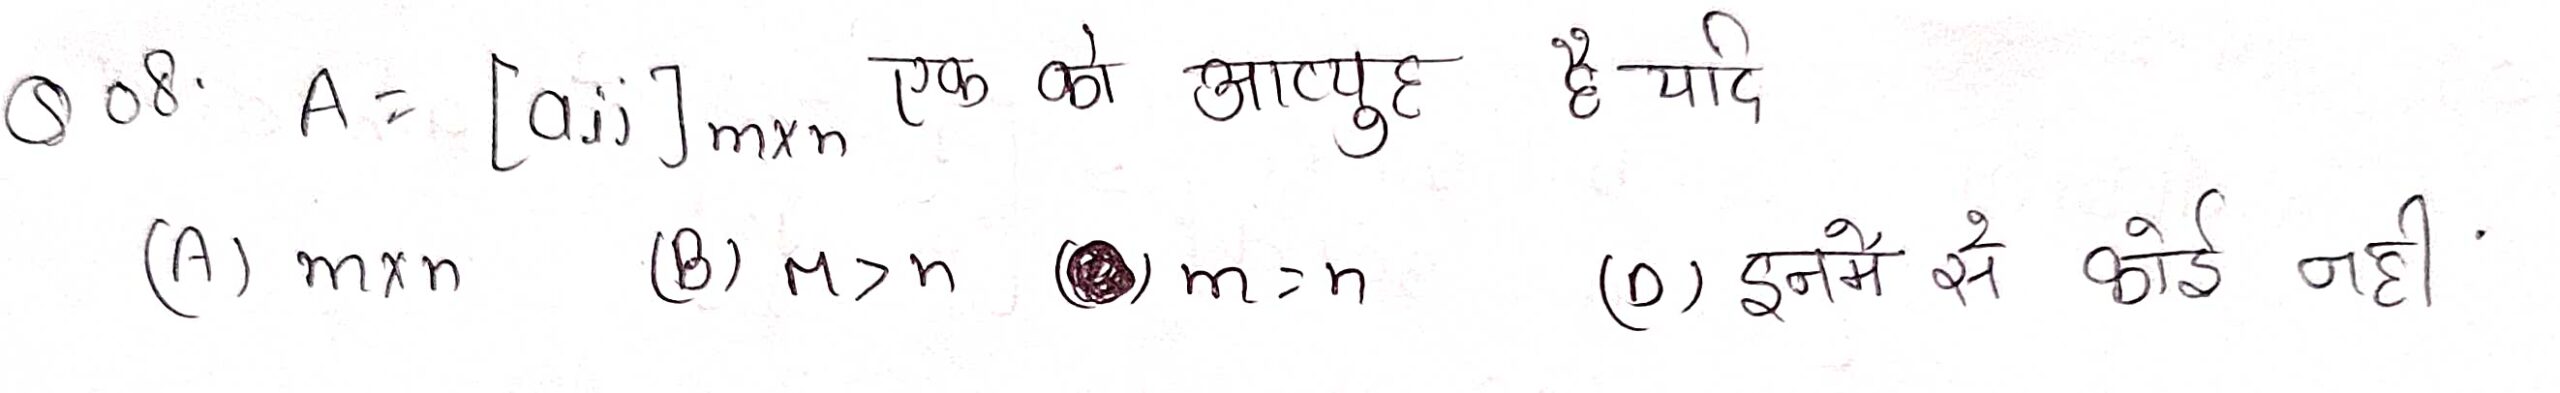 Q 08. A = [aij]m×n एक को आव्युह है यदि
(A) m×n (B) M>n () m=n (D) इनमें से कोई नही.